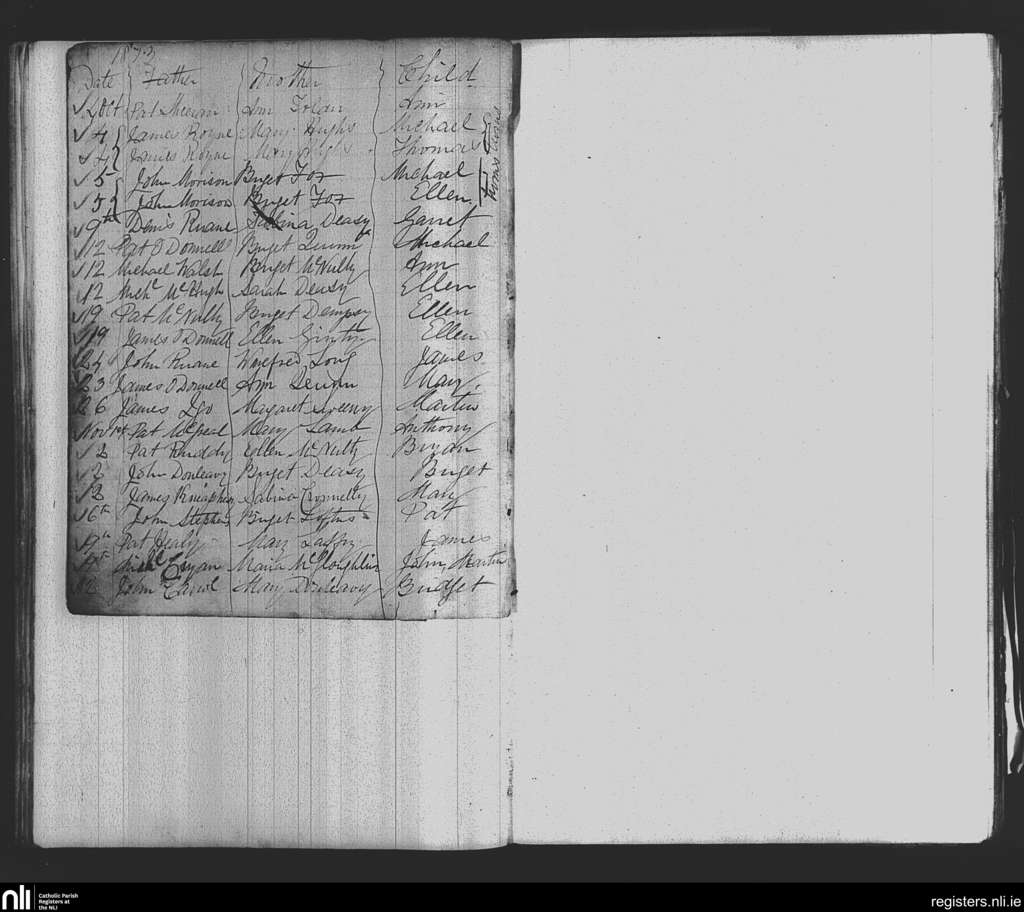 1873
Date Father Mother Child
Oct Pat Ann Ann
4 James Royne Mary Hughs Michael
4 James Royne Mary Thomas
5 John Morison Briget Fox Michael
5 John Morison Briget Fox Ellen
9th Denis Ruane Sabina Deasy Garret
12 Pat O Donnell Briget Quinn Michael
12 Michael Walsh Briget McNulty Ann
12 Michl McHugh Sarah Deasy Ellen
19 Pat McNulty Briget Dempsy Ellen
19 James O'Donnell Ellen Ginty Ellen
John Ruane Winefred Long James
23 James O'Donnell Ann Quinn Mary
26 James Igo Margaret Sweeny Martin
Nov 1st Pat Mary Lamb Anthony
2 Pat Ruddy Ellen McNulty Bryan
2 John Donleavy Briget Deasy Briget
2 James Sabina Connelly Mary
6th John Stephens Briget Loftus Pat
Pat Healy Mary James
Michl Maria McLoughlin John Martin
12 John Carrol Mary Donleavy Bridget
nli
Catholic Parish
Registers at
the NLI
registers.nli.ie